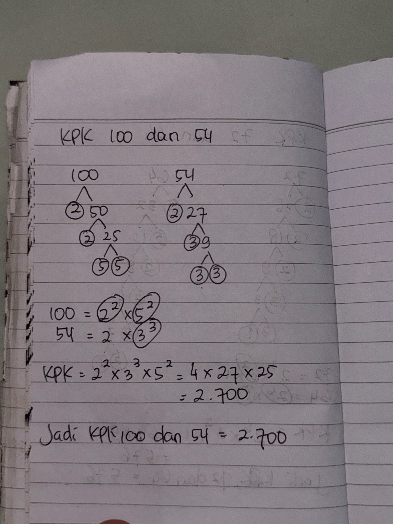 KPK 100 dan 54
100 54
2 50 2 27
2 25 3 9
5 5 3 3
100 = 2² × 5²
54 = 2 × 3³
KPK = 2² × 3³ × 5² = 4 × 27 × 25
= 2.700
Jadi KPK 100 dan 54 = 2.700